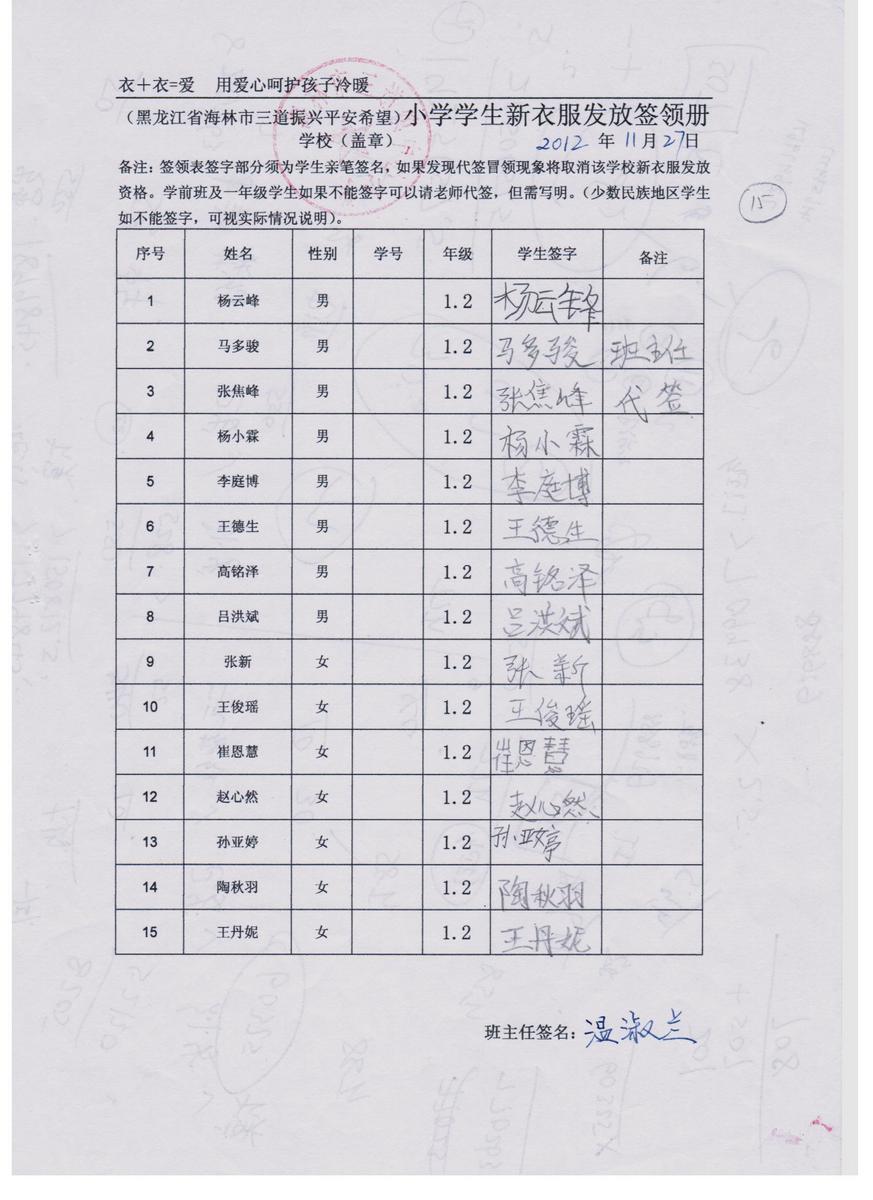 衣+衣=爱 用爱心呵护孩子冷暖
(黑龙江省海林市三道振兴平安希望)小学学生新衣服发放签领册
学校(盖章) 2012 年 11 月 27 日
备注:签领表签字部分须为学生亲笔签名,如果发现代签冒领现象将取消该学校新衣服发放
资格。学前班及一年级学生如果不能签字可以请老师代签,但需写明。(少数民族地区学生
如不能签字,可视实际情况说明)。
15
序号 姓名 性别 学号 年级 学生签字 备注
1 杨云峰 男 1.2 杨云峰
2 马多骏 男 1.2 马多骏 班主任
3 张焦峰 男 1.2 张焦峰 代签
4 杨小霖 男 1.2 杨小霖
5 李庭博 男 1.2 李庭博
6 王德生 男 1.2 王德生
7 高铭泽 男 1.2 高铭泽
8 吕洪斌 男 1.2 吕洪斌
9 张新 女 1.2 张新
10 王俊瑶 女 1.2 王俊瑶
11 崔恩慧 女 1.2 崔恩慧
12 赵心然 女 1.2 赵心然
13 孙亚婷 女 1.2 孙亚婷
14 陶秋羽 女 1.2 陶秋羽
15 王丹妮 女 1.2 王丹妮
班主任签名:温淑兰